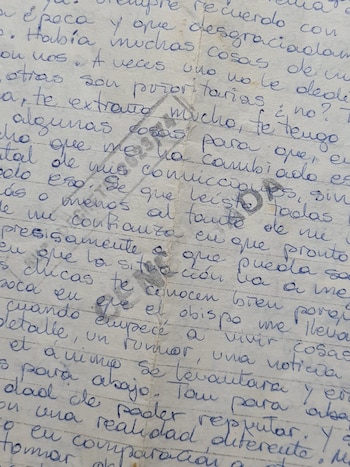 recuerdo con
época y que desgraciadam
. Había muchas cosas de mi
on nos. A veces uno no le dedi
, otras son prioritarias ¿no?
a, te extraño mucho, te tengo
algunas cosas para que, en
cho que no ha cambiado es
tal de mis convicciones, sin
do eso. Se que leiste todas
nos o menos al tanto de mi
de mi confianza en que pronto
presisamente a que pueda sa
en que la situación va a me
s chicas te conocen bien porqu
poca en que el obispo me lleva
cuando empecé a vivir cosas
detalle, un rumor, una noticia
el ánimo se levantara y e
s para abajo. Tan para aba
dad de poder repuntar. Y
on una realidad diferente. M
o en comparación a
tomar
CENSURADA